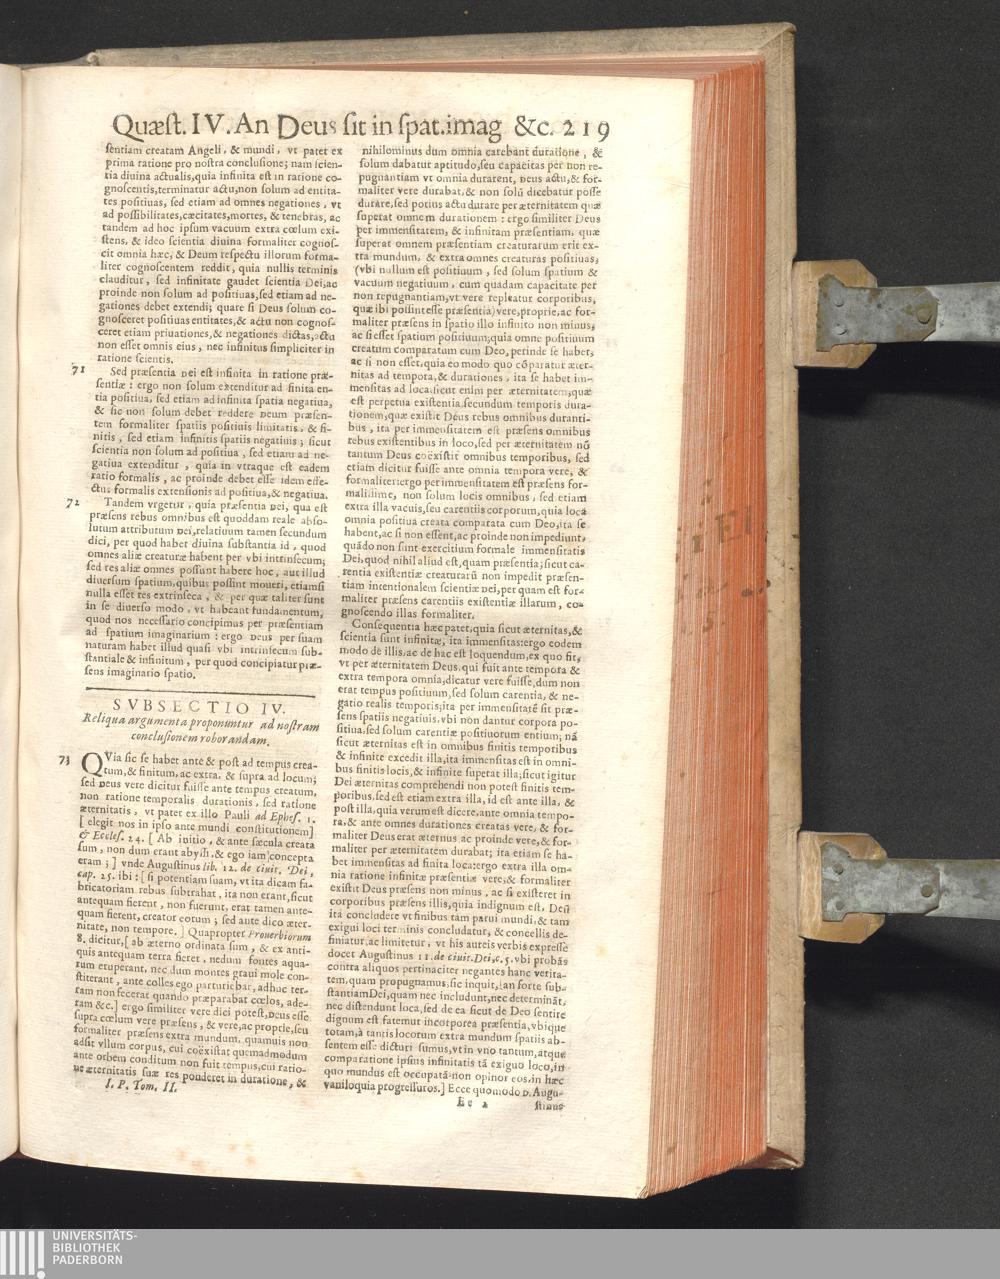 Quæſt. IV. An Deus ſit in ſpat.imag &c. 219
ſentiam creatam Angeli, & mundi, vt patet ex
prima ratione pro noſtra concluſione; nam ſcien-
tia diuina actualis,quia infinita eſt in ratione co-
gnoſcentis,terminatur actu,non ſolum ad entita-
tes poſitiuas, ſed etiam ad omnes negationes, vt
ad poſſibilitates,cæcitates,mortes, & tenebras, ac
tandem ad hoc ipſum vacuum extra cœlum exi-
ſtens, & ideo ſcientia diuina formaliter cognoſ-
cit omnia hæc, & Deum reſpectu illorum forma-
liter cognoſcentem reddit, quia nullis terminis
clauditur, ſed infinitate gaudet ſcientia Dei,ac
proinde non ſolum ad poſitiuas,ſed etiam ad ne-
gationes debet extendi; quare ſi Deus ſolum co-
gnoſceret poſitiuas entitates,& actu non cognoſ-
ceret etiam priuationes,& negationes dictas,actu
non eſſet omnis eius, nec infinitus ſimpliciter in
ratione ſcientis.
71 Sed præſentia Dei eſt infinita in ratione præ-
ſentiæ : ergo non ſolum extenditur ad finita en-
tia poſitiua, ſed etiam ad infinita ſpatia negatiua,
& ſic non ſolum debet reddere Deum præſen-
tem formaliter ſpatiis poſitiuis limitatis, & fi-
nitis, ſed etiam infinitis ſpatiis negatiuis; ſicut
ſcientia non ſolum ad poſitiua, ſed etiam ad ne-
gatiua extenditur, quia in vtraque eſt eadem
ratio formalis, ac proinde debet eſſe idem effe-
ctus formalis extenſionis ad poſitiua,& negatiua.
72 Tandem vrgetur, quia præſentia Dei, qua eſt
præſens rebus omnibus eſt quoddam reale abſo-
lutum attributum Dei,relatiuum tamen ſecundum
dici, per quod habet diuina ſubſtantia id, quod
omnes aliæ creaturæ habent per vbi intrinſecum;
ſed res aliæ omnes poſſunt habere hoc, aut illud
diuerſum ſpatium,quibus poſſint moueri, etiamſi
nulla eſſet res extrinſeca, & per quæ taliter ſunt
in ſe diuerſo modo, vt habeant fundamentum,
quod nos neceſſario concipimus per præſentiam
ad ſpatium imaginarium : ergo Deus per ſuam
naturam habet illud quaſi vbi intrinſecum ſub-
ſtantiale & infinitum, per quod concipiatur præ-
ſens imaginario ſpatio.
SVBSECTIO IV.
Reliqua argumenta proponuntur ad noſtram
concluſionem roborandam.
73 QVia ſic ſe habet ante & poſt ad tempus crea-
tum,& finitum, ac extra, & ſupra ad locum;
ſed Deus vere dicitur fuiſſe ante tempus creatum,
non ratione temporalis durationis, ſed ratione
æternitatis, vt patet ex illo Pauli ad Epheſ. 1.
[ elegit nos in ipſo ante mundi conſtitutionem]
& Eccleſ. 24. [ Ab initio, & ante ſæcula creata
ſum, non dum erant abyſſi,& ego iam concepta
eram ; ] vnde Auguſtinus lib. 12. de ciuit. Dei,
cap. 25. ibi : [ ſi potentiam ſuam, vt ita dicam fa-
bricatoriam rebus ſubtrahat, ita non erant,ſicut
antequam fierent, non fuerunt, erat tamen ante-
quam fierent, creator eorum ; ſed ante dico æter-
nitate, non tempore. ] Quapropter Prouerbiorum
8. dicitur,[ ab æterno ordinata ſum, & ex anti-
quis antequam terra fieret, nedum fontes aqua-
rum eruperant, nec dum montes graui mole con-
ſtiterant, ante colles ego parturiebar, adhuc ter-
ram non fecerat quando præparabat cœlos, ade-
ram &c.] ergo ſimiliter vere dici poteſt,Deus eſſe
ſupra cœlum vere præſens, & vere,ac proprie,ſeu
formaliter præſens extra mundum, quamuis non
adſit vllum corpus, cui coëxiſtat quemadmodum
ante orbem conditum non fuit tempus,cui ratio-
ne æternitatis ſuæ res ponderet in duratione, &
I. P. Tom. II.
nihilominus dum omnia carebant duratione, &
ſolum dabatur aptitudo,ſeu capacitas per non re-
pugnantiam vt omnia durarent, Deus actu,& for-
maliter vere durabat,& non ſolū dicebatur poſſe
durare,ſed potius actu durare per æternitatem quæ
ſuperat omnem durationem : ergo ſimiliter Deus
per immenſitatem, & infinitam præſentiam, quæ
ſuperat omnem præſentiam creaturarum erit ex-
tra mundum, & extra omnes creaturas poſitiuas,
(vbi nullum eſt poſitiuum, ſed ſolum ſpatium &
vacuum negatiuum, cum quadam capacitate per
non repugnantiam,vt vere repleatur corporibus,
quæ ibi poſſint eſſe præſentia) vere,proprie,ac for-
maliter præſens in ſpatio illo infinito non minus,
ac ſi eſſet ſpatium poſitiuum,quia omne poſitiuum
creatum comparatum cum Deo, perinde ſe habet,
ac ſi non eſſet,quia eo modo quo cōparatur æter-
nitas ad tempora,& durationes, ita ſe habet im-
menſitas ad loca:ſicut enim per æternitatem,quæ
eſt perpetua exiſtentia ſecundum temporis dura-
tionem,quæ exiſtit Deus rebus omnibus duranti-
bus, ita per immenſitatem eſt præſens omnibus
rebus exiſtentibus in loco,ſed per æternitatem nō
tantum Deus coëxiſtit omnibus temporibus, ſed
etiam dicitur fuiſſe ante omnia tempora vere, &
formaliter:ergo per immenſitatem eſt præſens for-
maliſſime, non ſolum locis omnibus, ſed etiam
extra illa vacuis,ſeu carentiis corporum,quia loca
omnia poſitiua creata comparata cum Deo,ita ſe
habent,ac ſi non eſſent,ac proinde non impediunt,
quādo non ſunt exercitium formale immenſitatis
Dei,quod nihil aliud eſt,quam præſentia;ſicut ca-
rentia exiſtentiæ creaturarū non impedit præſen-
tiam intentionalem ſcientiæ Dei,per quam eſt for-
maliter præſens carentiis exiſtentiæ illarum, co-
gnoſcendo illas formaliter.
Conſequentia hæc patet,quia ſicut æternitas,&
ſcientia ſunt infinitæ, ita immenſitas:ergo eodem
modo de illis,ac de hac eſt loquendum,ex quo fit,
vt per æternitatem Deus,qui fuit ante tempora &
extra tempora omnia,dicatur vere fuiſſe,dum non
erat tempus poſitiuum,ſed ſolum carentia, & ne-
gatio realis temporis;ita per immenſitatē ſit præ-
ſens ſpatiis negatiuis,vbi non dantur corpora po-
ſitiua,ſed ſolum carentiæ poſitiuorum entium; nā
ſicut æternitas eſt in omnibus finitis temporibus
& infinite excedit illa,ita immenſitas eſt in omni-
bus finitis locis,& infinite ſuperat illa;ſicut igitur
Dei æternitas comprehendi non poteſt finitis tem-
poribus,ſed eſt etiam extra illa, id eſt ante illa, &
poſt illa,quia verum eſt dicere,ante omnia tempo-
ra,& ante omnes durationes creatas vere, & for-
maliter Deus erat æternus ac proinde vere,& for-
maliter per æternitatem durabat; ita etiam ſe ha-
bet immenſitas ad finita loca:ergo extra illa om-
nia ratione infinitæ præſentiæ vere,& formaliter
exiſtit Deus præſens non minus, ac ſi exiſteret in
corporibus præſens illis,quia indignum eſt, Deū
ita concludere vt finibus tam parui mundi,& tam
exigui loci terminis concludatur, & concellis de-
finiatur,ac limitetur, vt his aureis verbis expreſſe
docet Auguſtinus 11.de ciuit.Dei,c.5.vbi probās
contra aliquos pertinaciter negantes hanc verita-
tem,quam propugnamus,ſic inquit,[an forte ſub-
ſtantiam Dei,quam nec includunt,nec determināt,
nec diſtendunt loca,ſed de ea ſicut de Deo ſentire
dignum eſt fatemur incorporea præſentia,vbique
totam,à tantis locorum extra mundum ſpatiis ab-
ſentem eſſe dicturi ſumus,vt in vno tantum,atque
comparatione ipſius infinitatis tā exiguo loco,in
quo mundus eſt occupatā·non opinor eos,in hæc
vaniloquia progreſſuros.] Ecce quomodo D. Augu-
Ee 2 ſtinus
UNIVERSITÄTS-
BIBLIOTHEK
PADERBORN